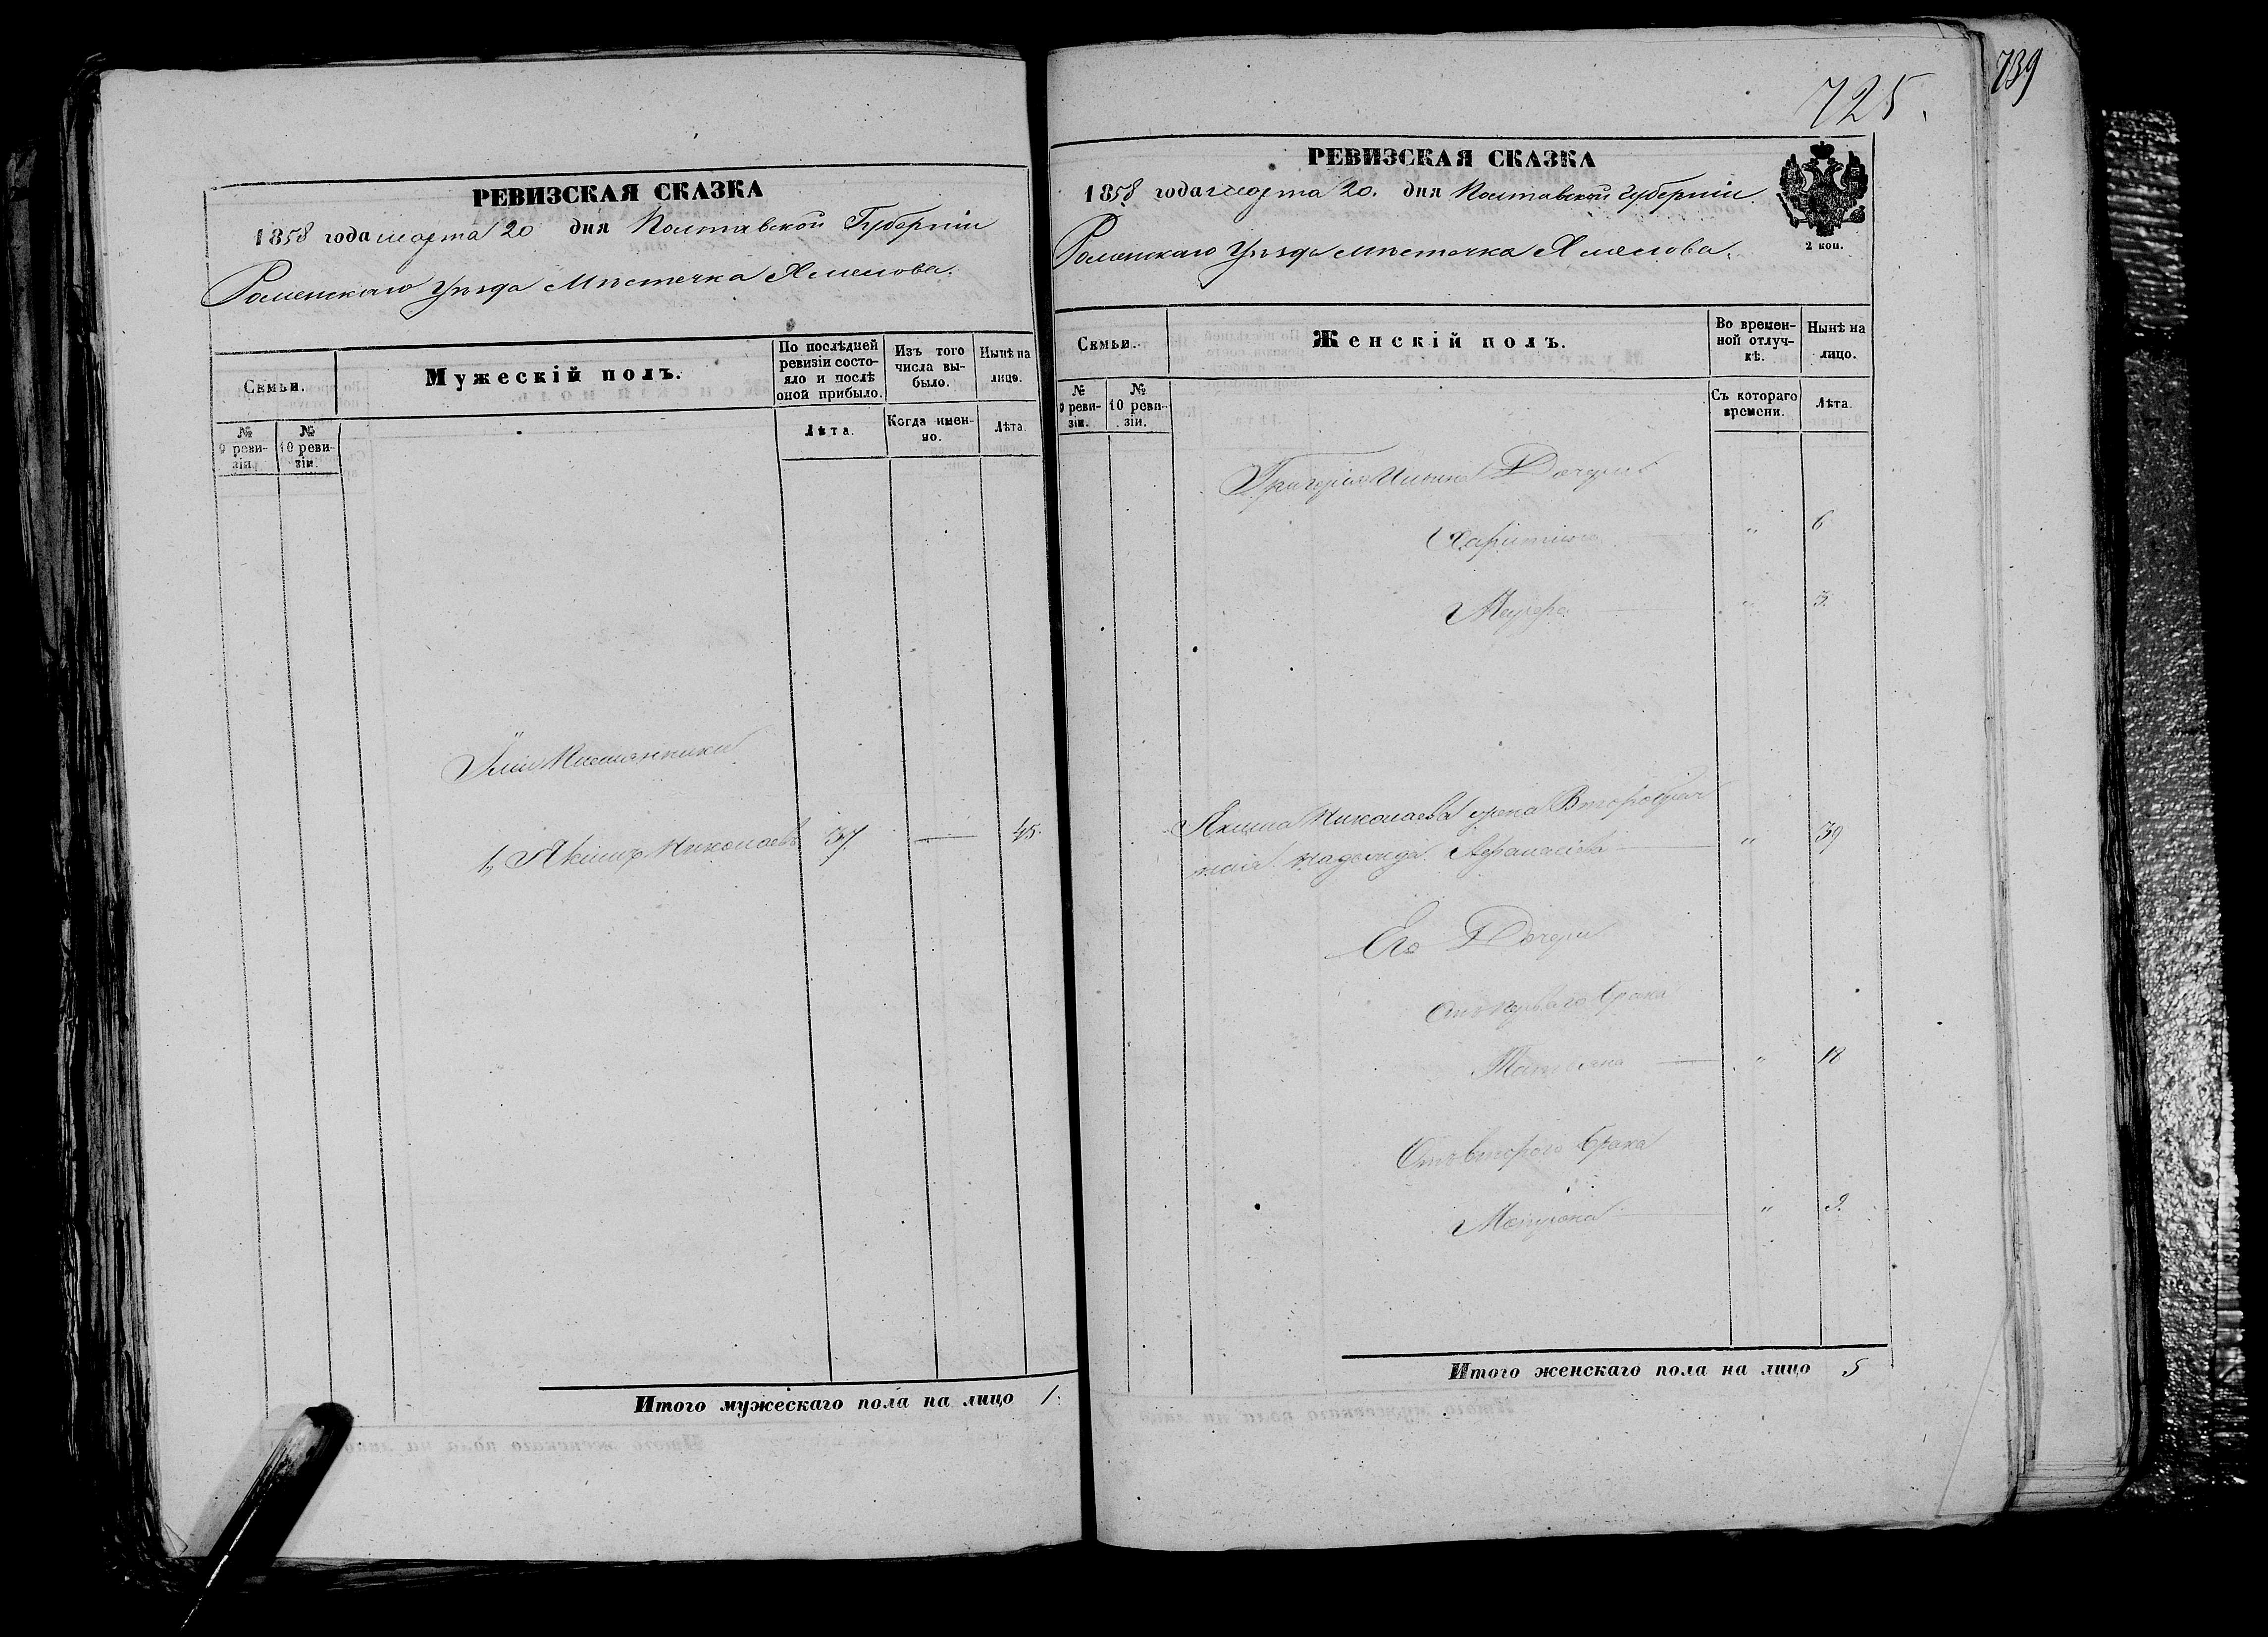 РЕВИЗСКАЯ СКАЗКА
1858 года марта 20 дня Полтавской Губерніи
Роменскаго Уѣзда Мѣстечка Хмелова.
Семьи.
Мужескій полъ.
По послѣдней ревизіи состояло и послѣ оной прибыло.
Изъ того числа выбыло.
Нынѣ на лицо.
№ 9 ревизіи.
№ 10 ревизіи.
Лѣта.
Когда именно.
Лѣта.
Племянники
1, Якимъ Николаевъ 37 — 45.
Итого мужескаго пола на лицо 1.
739
725.
РЕВИЗСКАЯ СКАЗКА
1858 года марта 20. дня Полтавской Губерніи
Роменскаго Уѣзда Мѣстечка Хмелова.
2 коп.
Семьи.
Женскій полъ.
Во временной отлучкѣ.
Нынѣ на лицо.
№ 9 ревизіи.
№ 10 ревизіи.
Съ котораго времени.
Лѣта.
Григорія Дочери
Харитина " 6
Мавра " 3.
Якима Николаева жена Второбрач
ная Афанасіева " 39
Его Дочери
Отъ перваго брака
Татьяна " 18
Отъ втораго брака
Мотрона " 9.
Итого женскаго пола на лицо 5